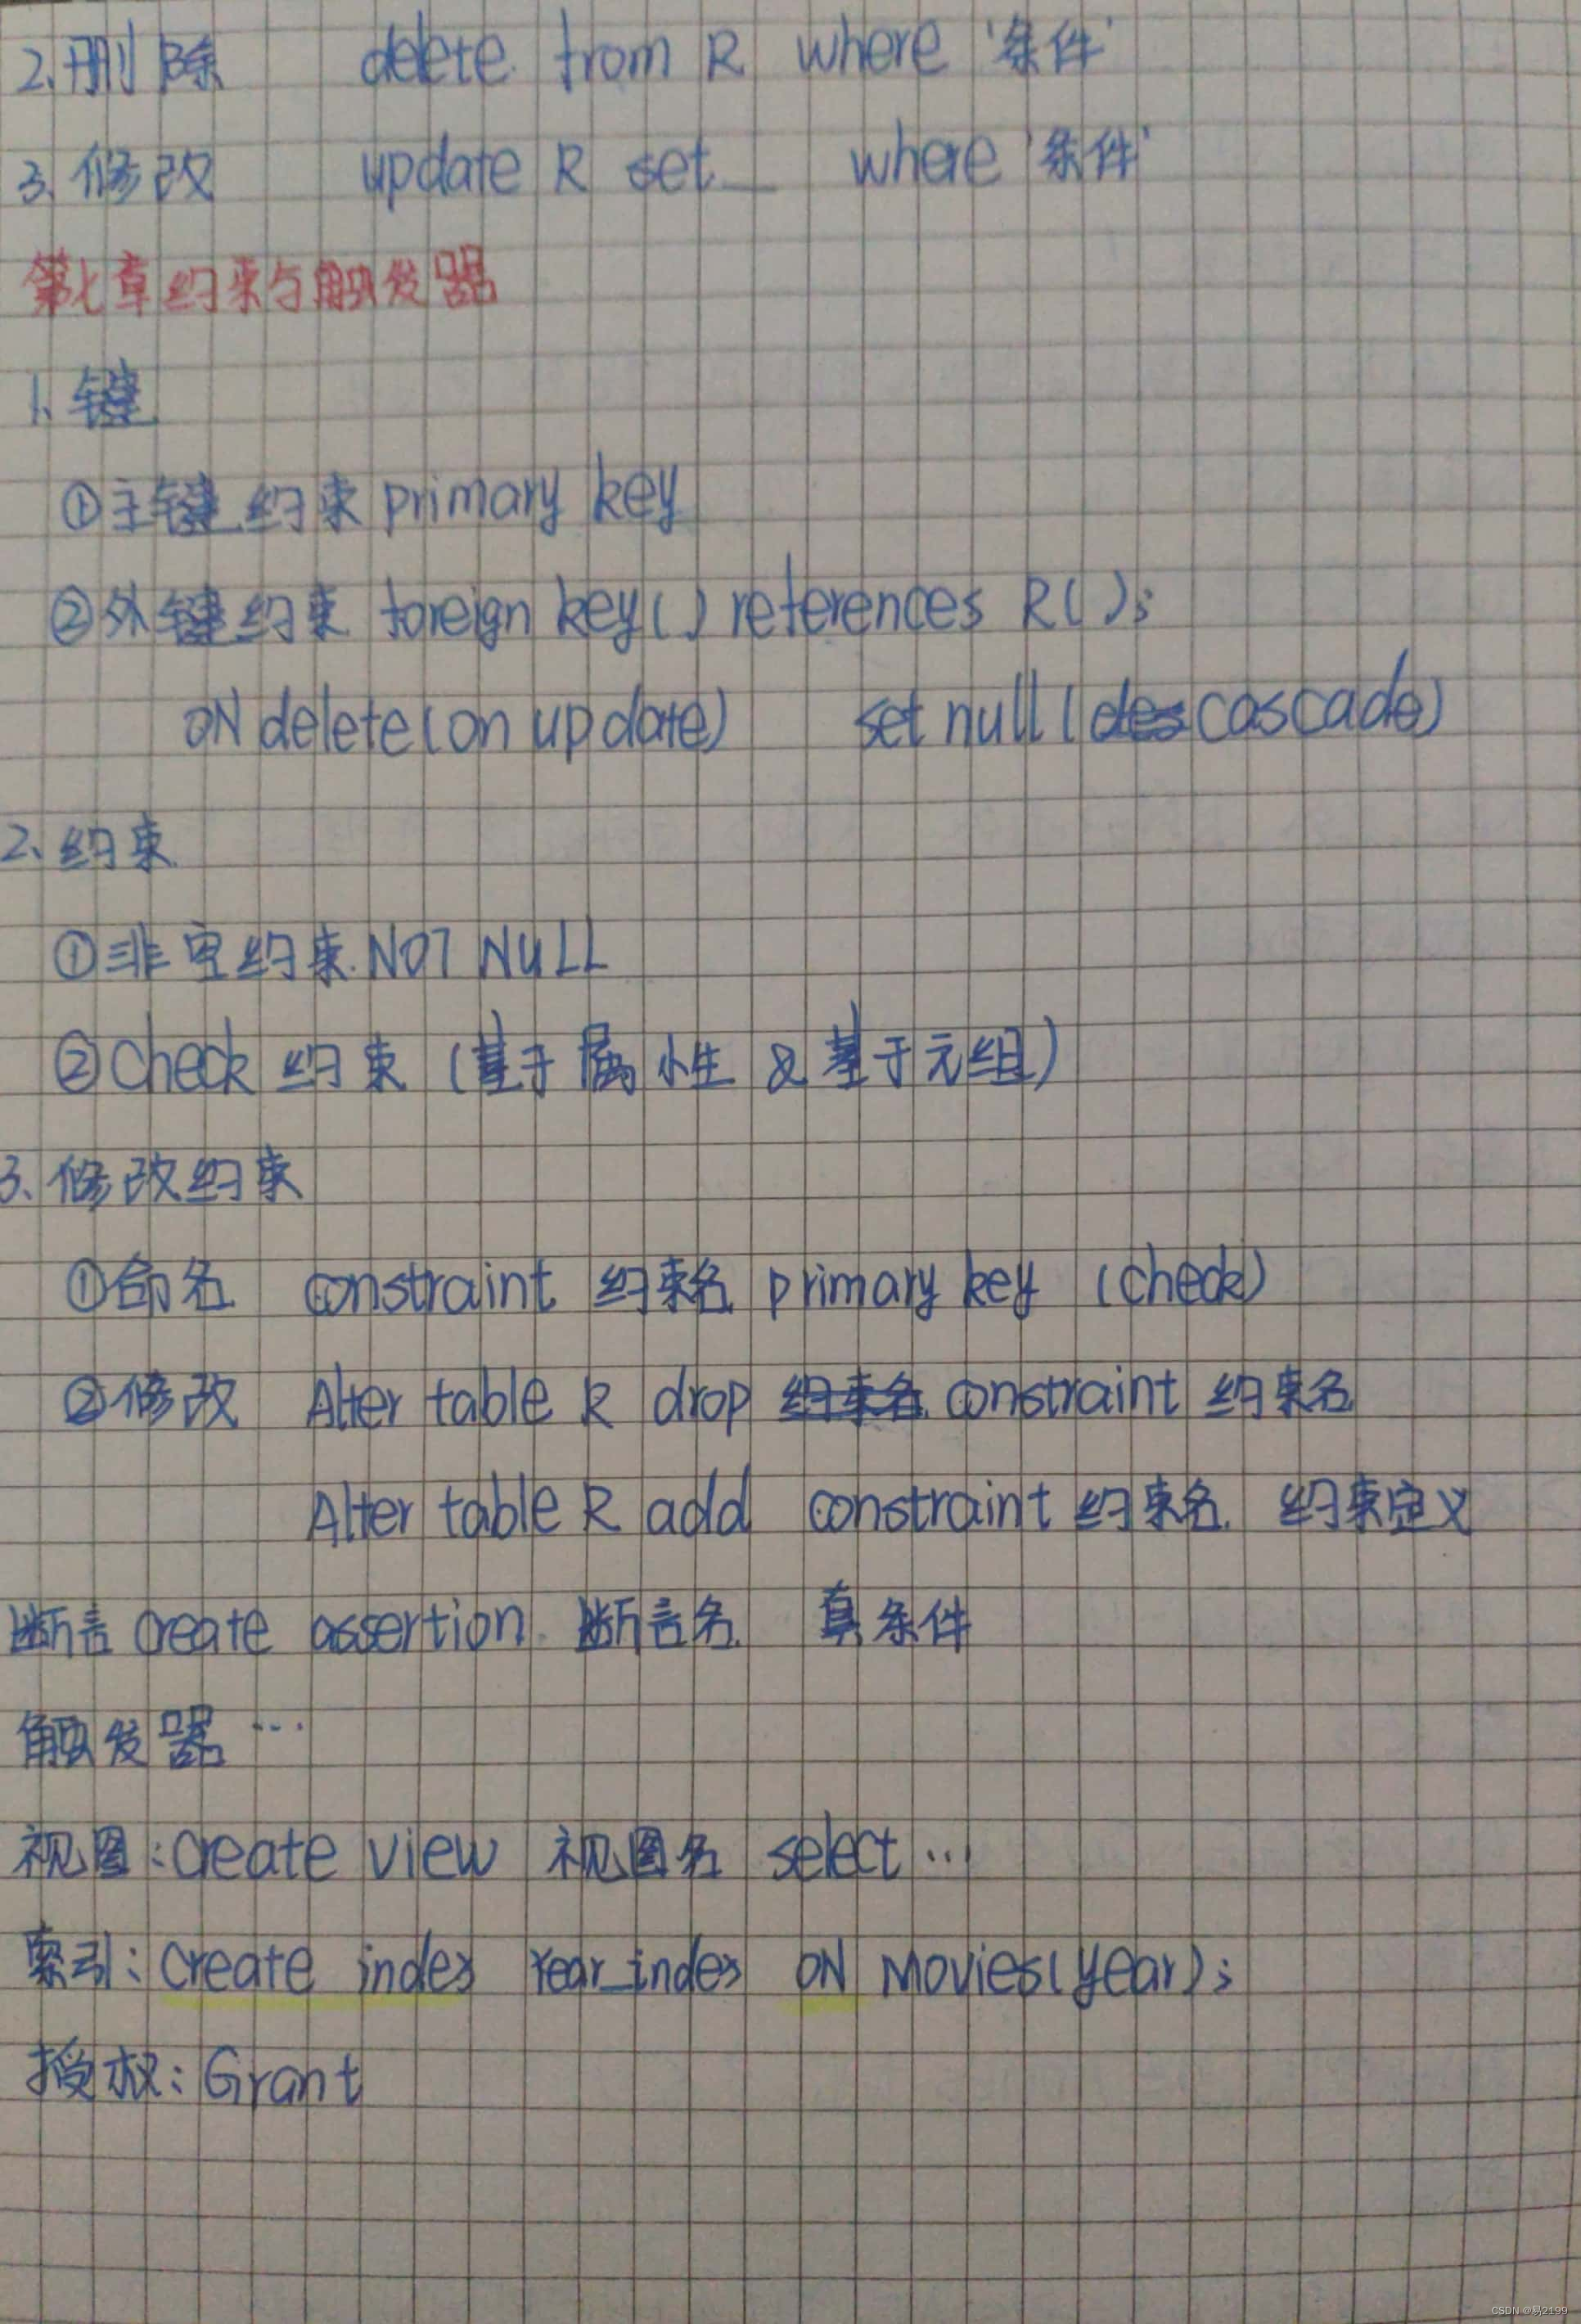 2、删除 delete from R where '条件'
3、修改 update R set __ where '条件'
第七章约束与触发器
1、键
①主键约束 primary key
②外键约束 foreign key() references R();
ON delete(on update) set null(cascade)
2、约束
①非空约束 NOT NULL
②Check 约束 (基于属性 & 基于元组)
3、修改约束
①命名 constraint 约束名 primary key (check)
②修改 Alter table R drop 约束名 constraint 约束名
Alter table R add constraint 约束名 约束定义
断言 create assertion 断言名 真条件
触发器…
视图:create view 视图名 select…
索引:create index Year_index ON Movies(year);
授权:Grant
CSDN @易2199